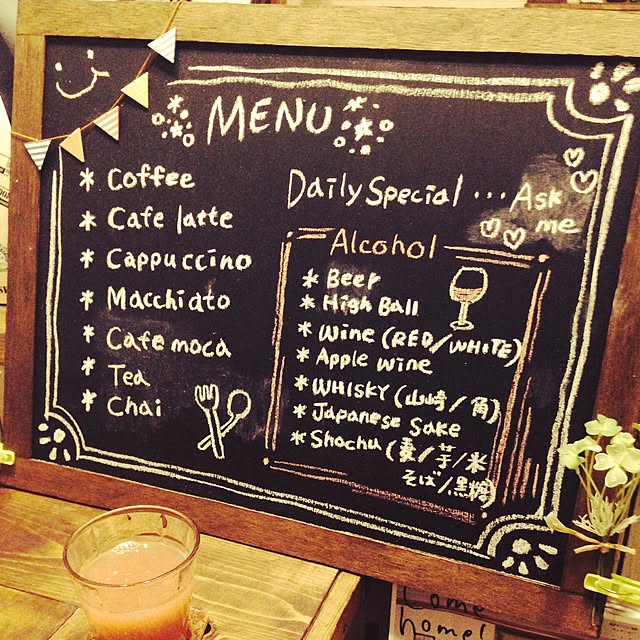 MENU
* Coffee
* Cafe latte
* Cappuccino
* Macchiato
* Cafe moca
* Tea
* Chai
Daily Special ... Ask me
Alcohol
* Beer
* High Ball
* Wine (RED/WHITE)
* Apple wine
* WHISKY (山崎/角)
* Japanese Sake
* Shochu (麦/芋/米
そば/黒糖)
come
home!